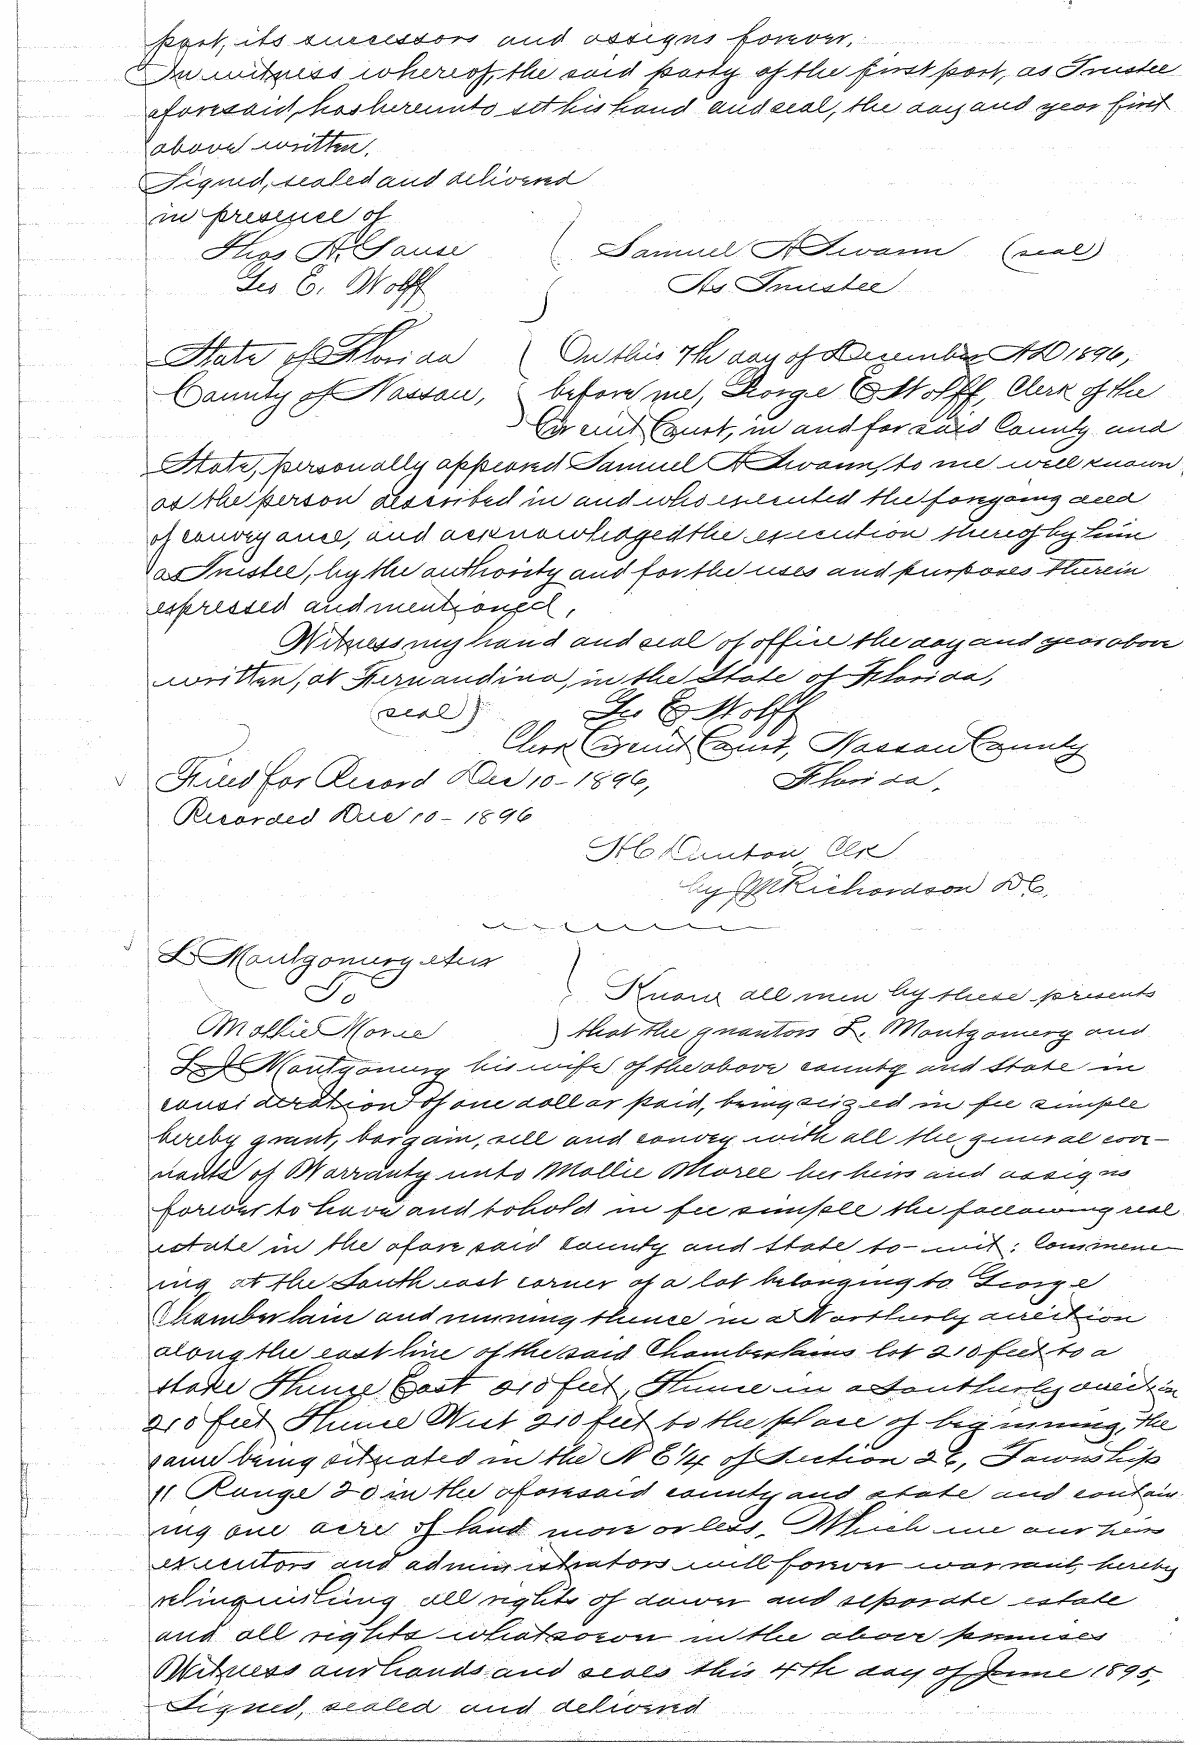 part, its successors and assigns forever.
In witness whereof, the said party of the first part, as Trustee
aforesaid, has hereunto set his hand and seal, the day and year first
above written.
Signed, sealed and delivered
in presence of
Thos A. Gause
Samuel A Swann (seal)
Geo E. Wolff
As Trustee
State of Florida
On this 7th day of December A D 1896,
County of Nassau,
before me, George E Wolff, Clerk of the
Circuit Court, in and for said County and
State, personally appeared Samuel A Swann, to me well known
as the person described in and who executed the foregoing deed
of conveyance, and acknowledged the execution thereof by him
as Trustee, by the authority and for the uses and purposes therein
expressed and mentioned.
Witness my hand and seal of office the day and year above
written, at Fernandina, in the State of Florida,
(seal) Geo E Wolff
Clerk Circuit Court, Nassau County
Filed for Record Dec 10 - 1896, Florida.
Recorded Dec 10 - 1896
H C Denton, Clk
by M Richardson D C.
L Montgomery et ux
To
Know all men by these presents
Mollie Moree
that the grantors L. Montgomery and
Montgomery his wife of the above county and State in
consideration of one dollar paid, being seized in fee simple
hereby grant, bargain, sell and convey with all the general cove-
nants of Warranty unto Mollie Moree her heirs and assigns
forever to have and to hold in fee simple the following real
estate in the aforesaid county and state to-wit: Commenc
ing at the South east corner of a lot belonging to George
Chamberlain and running thence in a Northerly direction
along the east line of the said Chamberlains lot 210 feet to a
stake Thence East 210 feet, Thence in a Southerly direction
210 feet Thence West 210 feet to the place of beginning, the
same being situated in the N E 1/4 of Section 26, Township
11 Range 20 in the aforesaid county and state and contain
ing one acre of land more or less. Which we our heirs
executors and administrators will forever warrant, hereby
relinquishing all rights of dower and separate estate
and all rights whatsoever in the above premises
Witness our hands and seals this 4th day of June 1895,
Signed, sealed and delivered